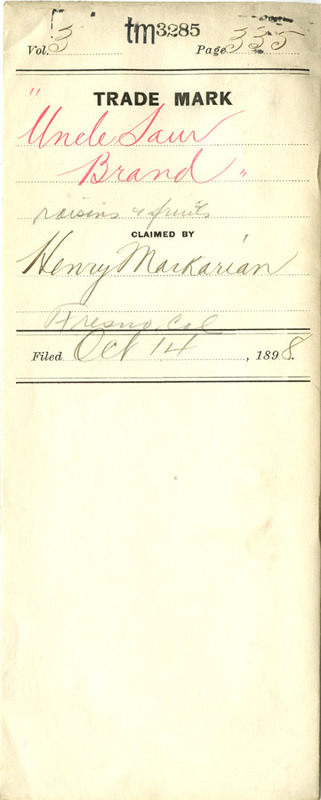 tm3285
Vol. 3 Page 335
TRADE MARK
"Uncle Sam
Brand"
raisins & fruits
CLAIMED BY
Henry Markarian
Fresno, Cal
Filed Oct 14, 1898.